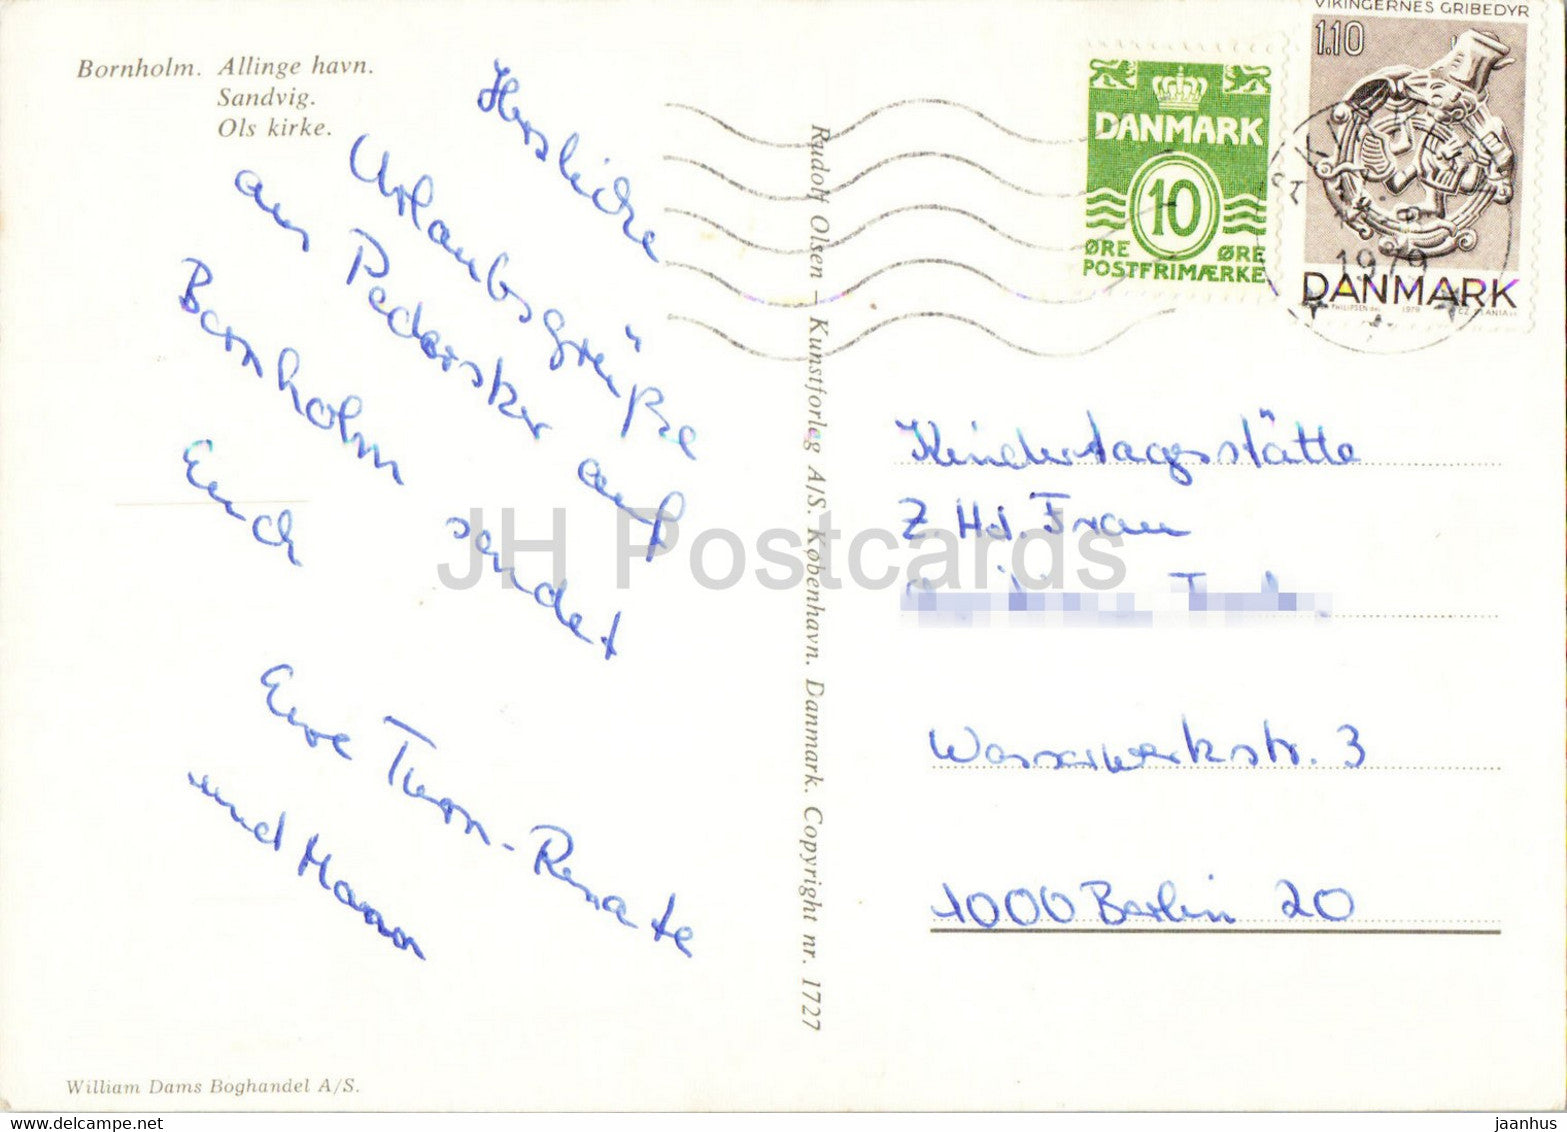 Bornholm. Allinge havn.
Sandvig.
Ols kirke.
Herzliche
Urlaubsgrüße
aus Pedersker auf
Bornholm sendet
Euch
Eure
und Mann
William Dams Boghandel A/S.
Rudolf Olsen – Kunstforlag A/S. København. Danmark. Copyright nr. 1727
DANMARK
10
ØRE ØRE
POSTFRIMÆRKE
VIKINGERNES GRIBEDYR
1.10
DANMARK
1979
1979
Kindertagesstätte
Z. Hd. Frau
Wasserwerkstr. 3
1000 Berlin 20
JH Postcards
delcampe.net
jaanhus